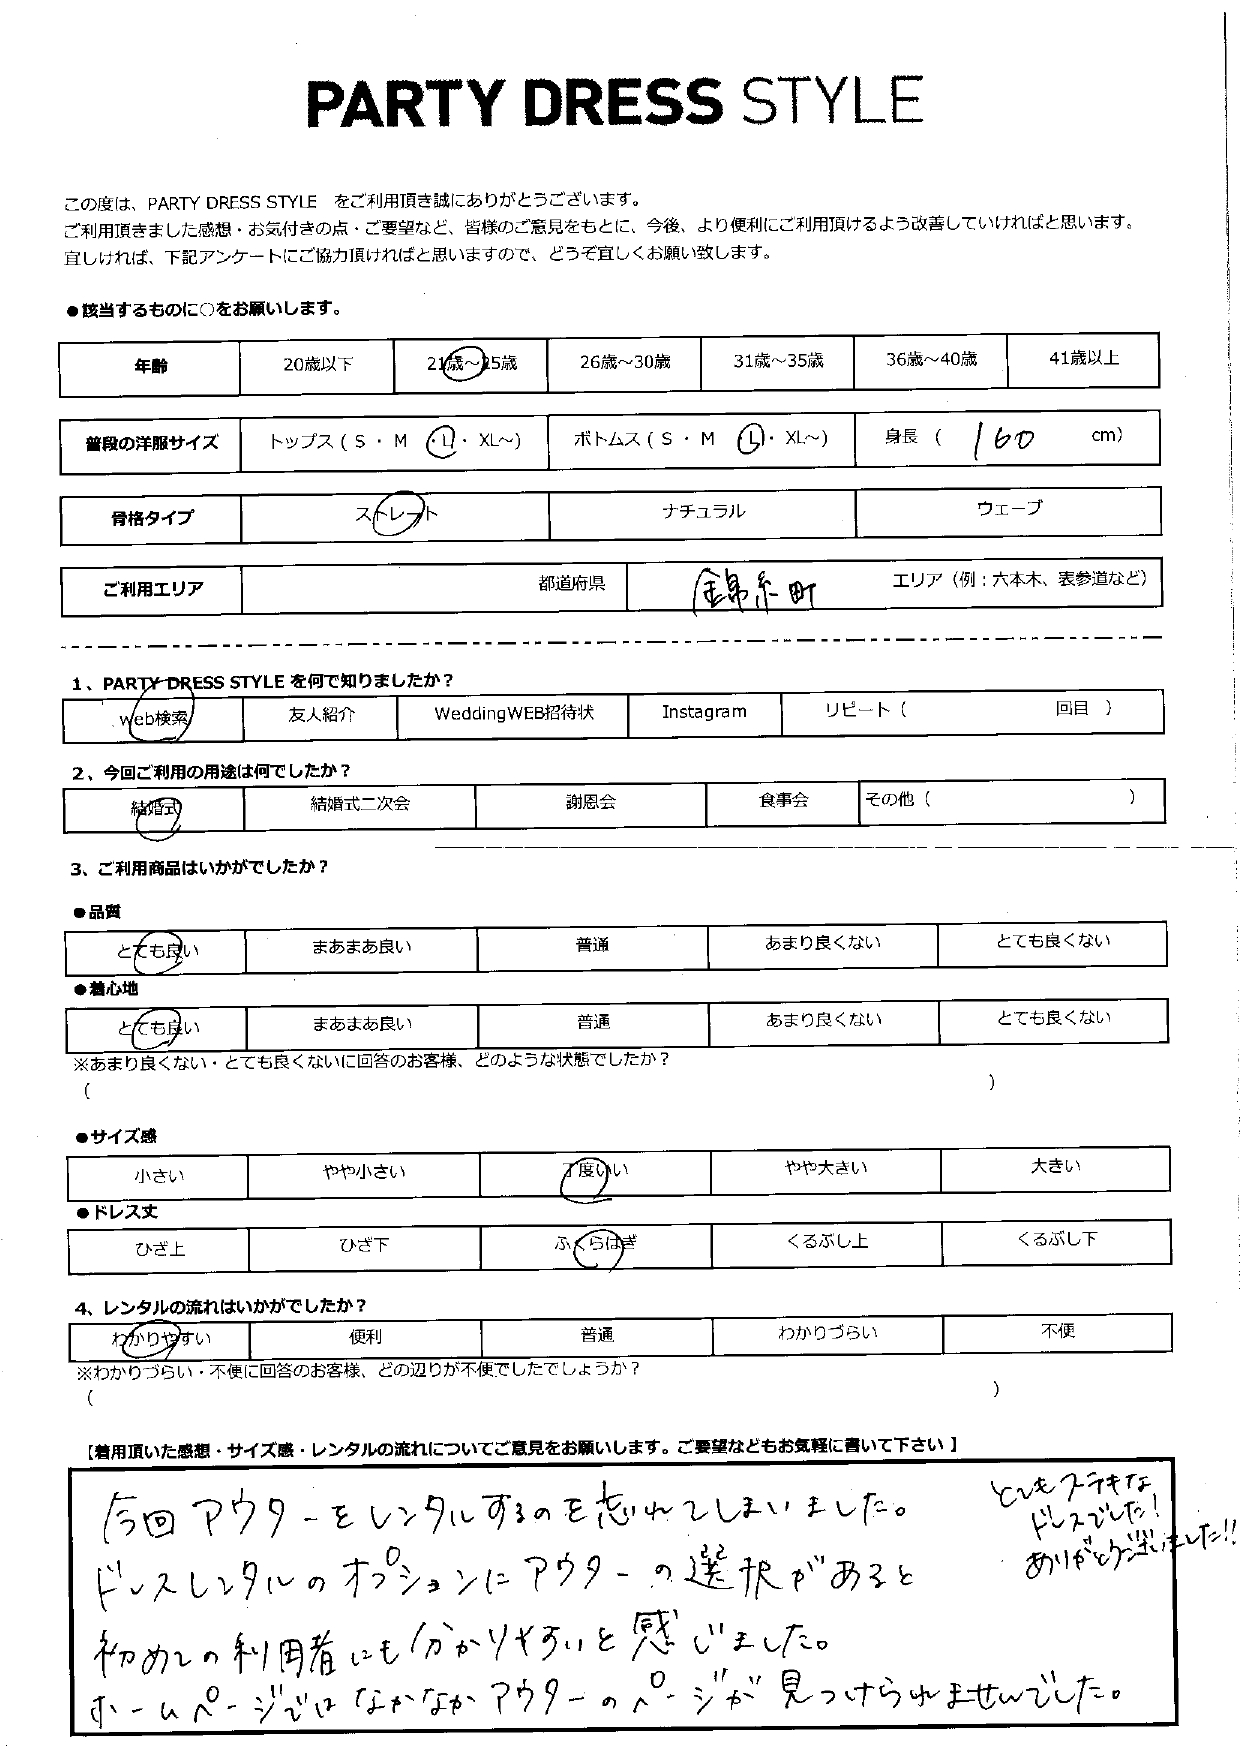 PARTY DRESS STYLE
この度は、PARTY DRESS STYLE をご利用頂き誠にありがとうございます。
ご利用頂きました感想・お気付きの点・ご要望など、皆様のご意見をもとに、今後、より便利にご利用頂けるよう改善していければと思います。
宜しければ、下記アンケートにご協力頂ければと思いますので、どうぞ宜しくお願い致します。
●該当するものに○をお願いします。
年齢 20歳以下 21歳～25歳 26歳～30歳 31歳～35歳 36歳～40歳 41歳以上
普段の洋服サイズ トップス ( S ・ M ・L・ XL～) ボトムス ( S ・ M ・L・ XL～) 身長 ( 160 cm)
骨格タイプ ストレート ナチュラル ウェーブ
ご利用エリア 都道府県 錦糸町 エリア（例：六本木、表参道など）
1、PARTY DRESS STYLE を何で知りましたか？
web検索 友人紹介 WeddingWEB招待状 Instagram リピート ( 回目 )
2、今回ご利用の用途は何でしたか？
結婚式 結婚式二次会 謝恩会 食事会 その他 ( )
3、ご利用商品はいかがでしたか？
●品質
とても良い まあまあ良い 普通 あまり良くない とても良くない
●着心地
とても良い まあまあ良い 普通 あまり良くない とても良くない
※あまり良くない・とても良くないに回答のお客様、どのような状態でしたか？
( )
●サイズ感
小さい やや小さい 丁度いい やや大きい 大きい
●ドレス丈
ひざ上 ひざ下 ふくらはぎ くるぶし上 くるぶし下
4、レンタルの流れはいかがでしたか？
わかりやすい 便利 普通 わかりづらい 不便
※わかりづらい・不便に回答のお客様、どの辺りが不便でしたでしょうか？
( )
【着用頂いた感想・サイズ感・レンタルの流れについてご意見をお願いします。ご要望などもお気軽に書いて下さい】
今回アウターをレンタルするのを忘れてしまいました。
ドレスレンタルのオプションにアウターの選択があると
初めての利用者にも分かりやすいと感じました。
ホームページではなかなかアウターのページが見つけられませんでした。
とてもステキな
ドレスでした！
ありがとうございました!!